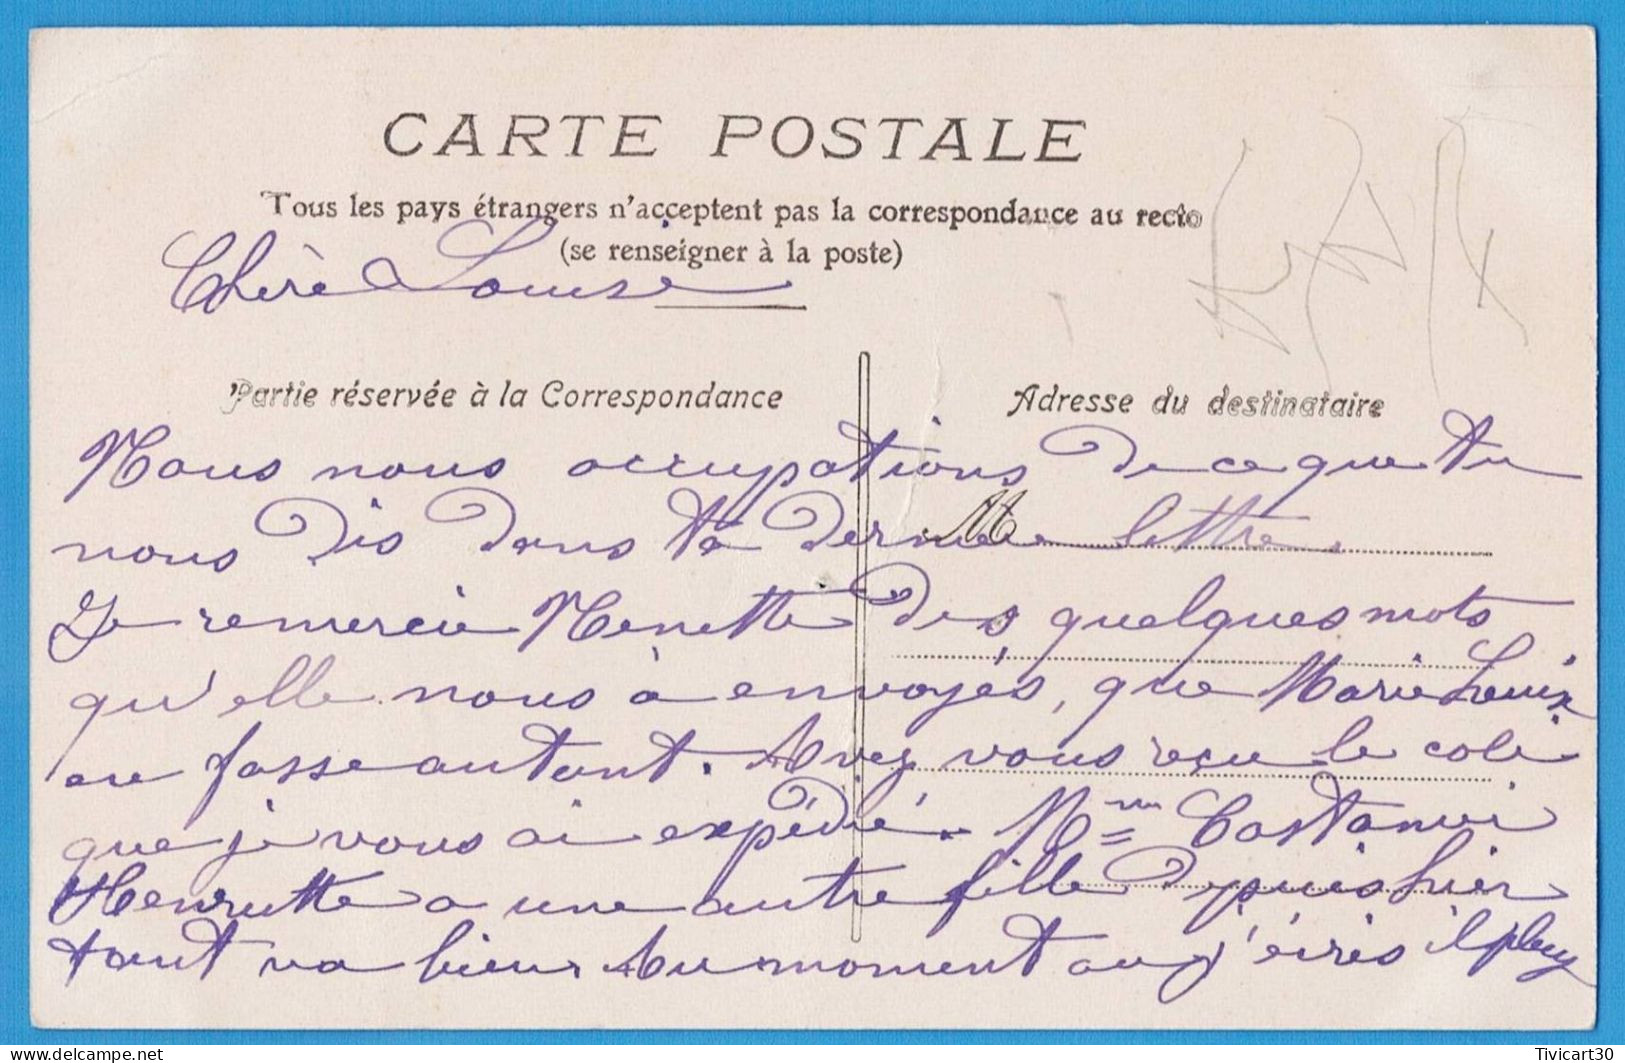 CARTE POSTALE
Tous les pays étrangers n'acceptent pas la correspondance au recto
(se renseigner à la poste)
Chère Louise
Partie réservée à la Correspondance
Adresse du destinataire
Nous nous occupations de ce que tu
nous dis dans ta dernière lettre.
M
Je remercie Nenette des quelques mots
qu'elle nous à envoyés, que Marie Louise
en fasse autant. Avez vous reçu le coli
que je vous ai expédié. Mme
Henriette a une autre fille depuis hier
tout va bien. Au moment ou j'écris il pleu
Tivicart30